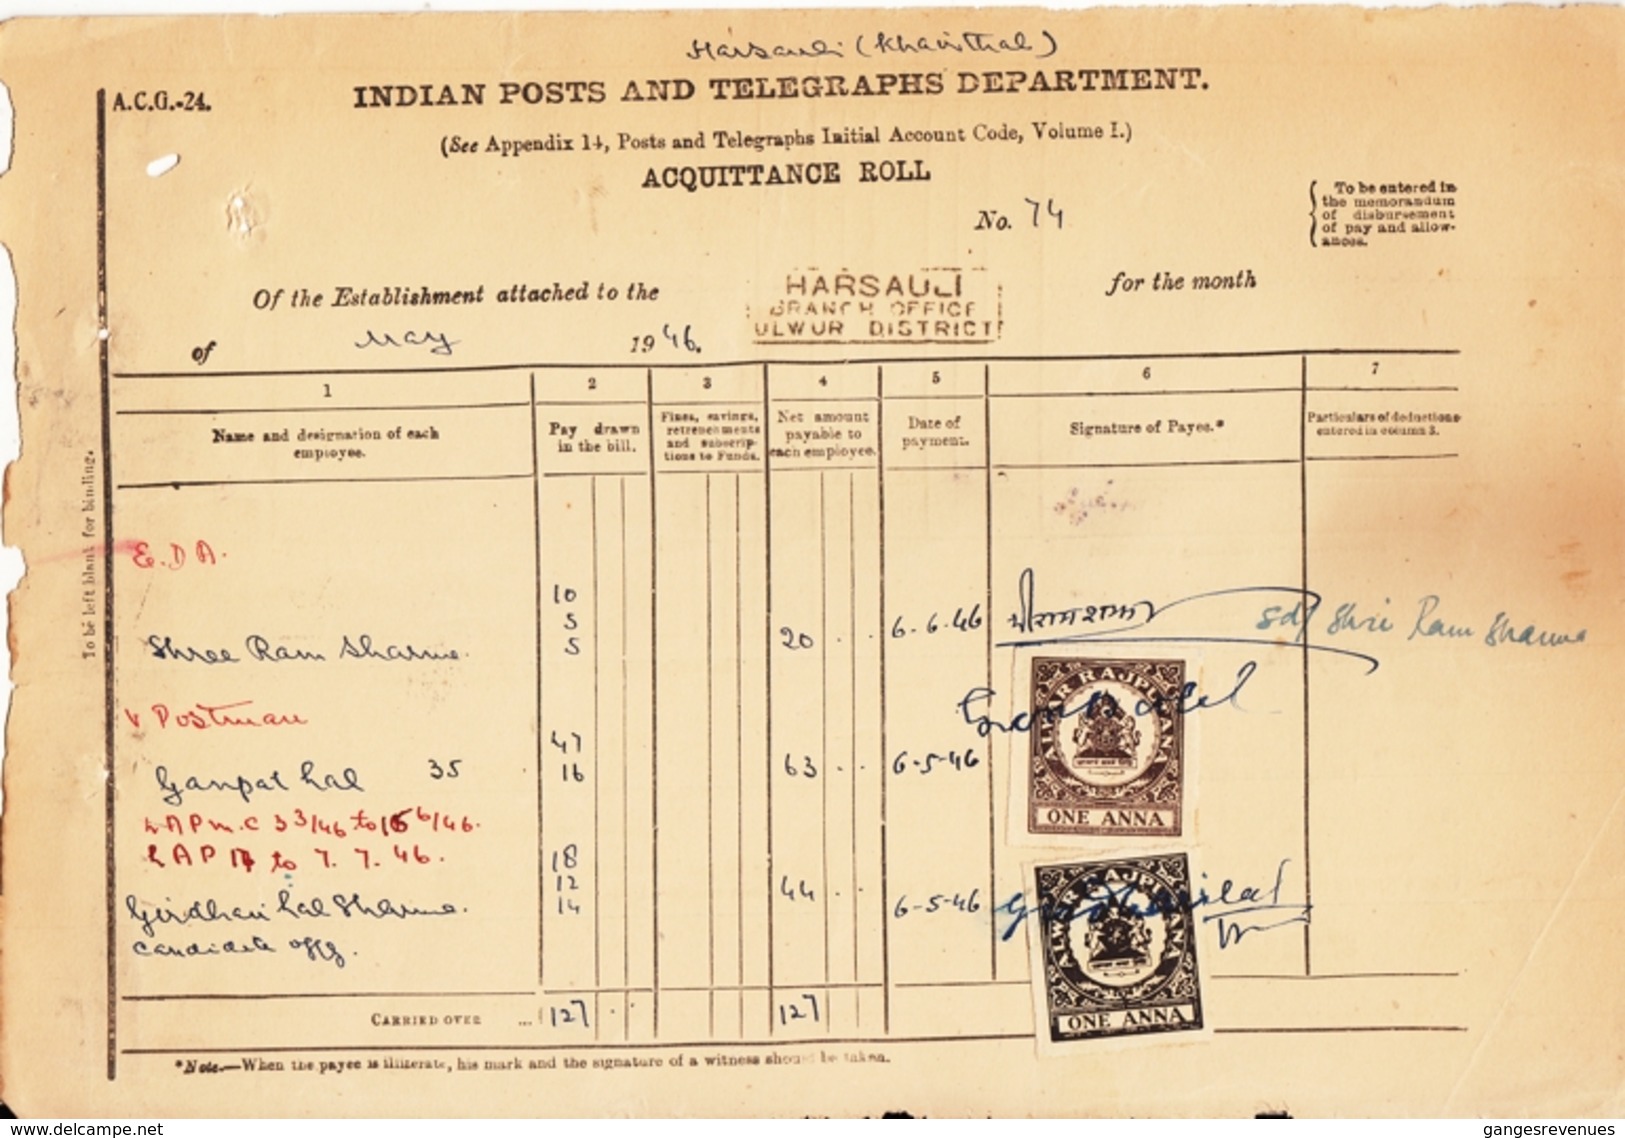 Harsauli (Khairthal)
A.C.G.-24.
INDIAN POSTS AND TELEGRAPHS DEPARTMENT.
(See Appendix 14, Posts and Telegraphs Initial Account Code, Volume I.)
ACQUITTANCE ROLL
No. 74
To be entered in
the memorandum
of disbursement
of pay and allow-
ances.
Of the Establishment attached to the
HARSAULI
BRANCH OFFICE
ULWUR DISTRICT
for the month
of May 1946.
To be left blank for binding.
1 2 3 4 5 6 7
Name and designation of each
employee.
Pay drawn
in the bill.
Fines, savings,
retrenchments
and subscrip-
tions to Funds.
Net amount
payable to
each employee.
Date of
payment.
Signature of Payee.*
Particulars of deductions
entered in column 3.
E.D.A.
10
5
Shree Ram Sharma. 5 20 6-6-46 श्रीराम शर्मा Sd/ Shri Ram Sharma
Postman
47
Ganpat Lal 35 16 63 6-5-46 Ganpat Lal
ALWAR RAJPUTANA
ONE ANNA
LAP m.c 3 3/46 to 6/46.
LAP to 7.7.46.
18
12
Girdhari Lal Sharma. 14 44 6-5-46 Girdharilal
candidate offg.
ALWAR RAJPUTANA
ONE ANNA
CARRIED OVER ... 127 127
*Note.—When the payee is illiterate, his mark and the signature of a witness should be taken.
delcampe.net
gangesrevenues